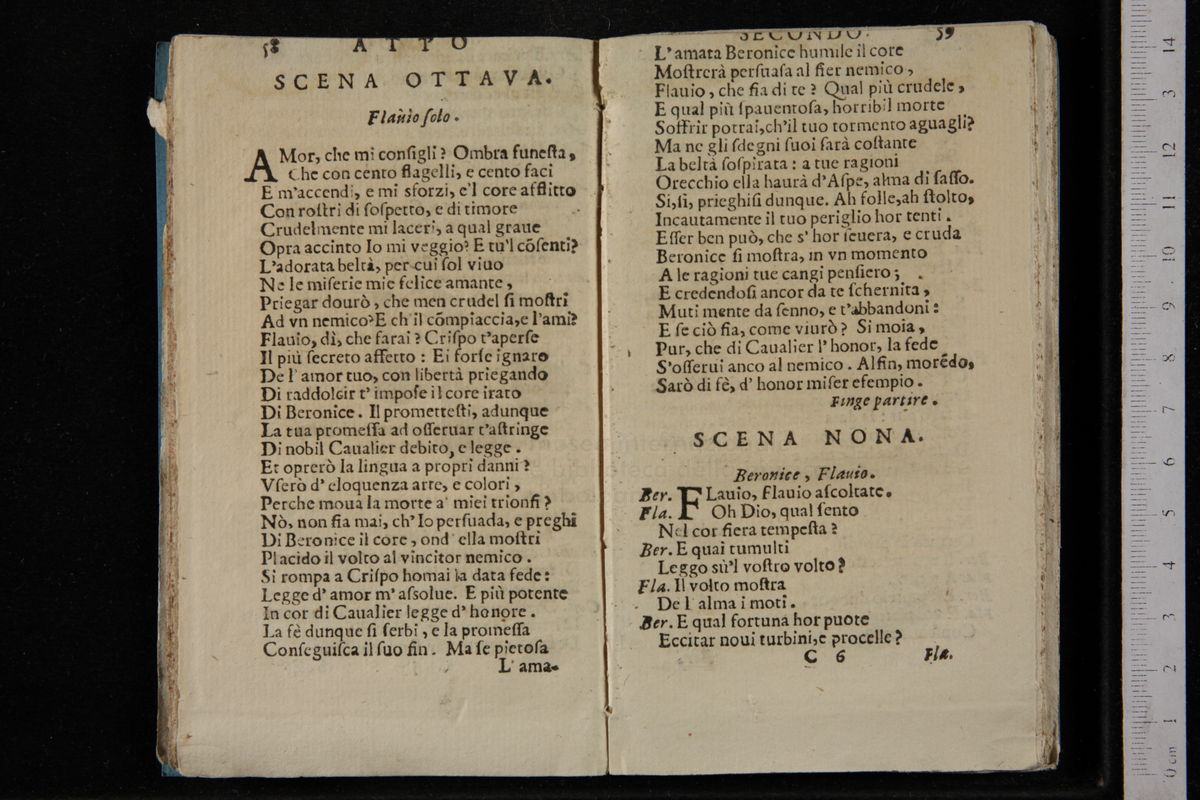 58 ATTO
SCENA OTTAVA.
Flauio ſolo.
AMor, che mi conſigli? Ombra funeſta,
Che con cento flagelli, e cento faci
E m'accendi, e mi sforzi, e'l core afflitto
Con roſtri di ſoſpetto, e di timore
Crudelmente mi laceri, a qual graue
Opra accinto Io mi veggio? E tu'l cõſenti?
L'adorata beltà, per cui ſol viuo
Ne le miſerie mie felice amante,
Priegar dourò, che men crudel ſi moſtri
Ad vn nemico? E ch'il cõmpiaccia, e l'ami?
Flauio, dì, che farai? Criſpo t'aperſe
Il più ſecreto affetto: Ei forſe ignaro
De l'amor tuo, con libertà priegando
Di raddolcir t'impoſe il core irato
Di Beronice. Il prometteſti, adunque
La tua promeſſa ad oſſeruar t'aſtringe
Di nobil Caualier debito, e legge.
Et oprerò la lingua a propri danni?
Vſerò d'eloquenza arte, e colori,
Perche moua la morte a' miei trionfi?
Nò, non fia mai, ch'Io perſuada, e preghi
Di Beronice il core, ond'ella moſtri
Placido il volto al vincitor nemico.
Si rompa a Criſpo homai la data fede:
Legge d'amor m'aſſolue. E più potente
In cor di Caualier legge d'honore.
La fè dunque ſi ſerbi, e la promeſſa
Conſeguiſca il ſuo fin. Ma ſe pietoſa
L'ama-
SECONDO. 59
L'amata Beronice humile il core
Moſtrerà perſuaſa al fier nemico,
Flauio, che fia di te? Qual più crudele,
E qual più ſpauentoſa, horribil morte
Soffrir potrai, ch'il tuo tormento aguagli?
Ma ne gli ſdegni ſuoi ſarà coſtante
La beltà ſoſpirata: a tue ragioni
Orecchio ella haurà d'Aſpe, alma di ſaſſo.
Si, ſi, prieghiſi dunque. Ah folle, ah ſtolto,
Incautamente il tuo periglio hor tenti.
Eſſer ben può, che s'hor ſeuera, e cruda
Beronice ſi moſtra, in vn momento
A le ragioni tue cangi penſiero;
E credendoſi ancor da te ſchernita,
Muti mente da ſenno, e t'abbandoni:
E ſe ciò fia, come viurò? Si moia,
Pur, che di Caualier l'honor, la fede
S'oſſerui anco al nemico. Alfin, morẽdo,
Sarò di fè, d'honor miſer eſempio.
Finge partire.
SCENA NONA.
Beronice, Flauio.
Ber. FLauio, Flauio aſcoltate.
Fla. Oh Dio, qual ſento
Nel cor fiera tempeſta?
Ber. E quai tumulti
Leggo sù'l voſtro volto?
Fla. Il volto moſtra
De l'alma i moti.
Ber. E qual fortuna hor puote
Eccitar noui turbini, e procelle?
C 6 Fla.
0 cm 1 2 3 4 5 6 7 8 9 10 11 12 13 14